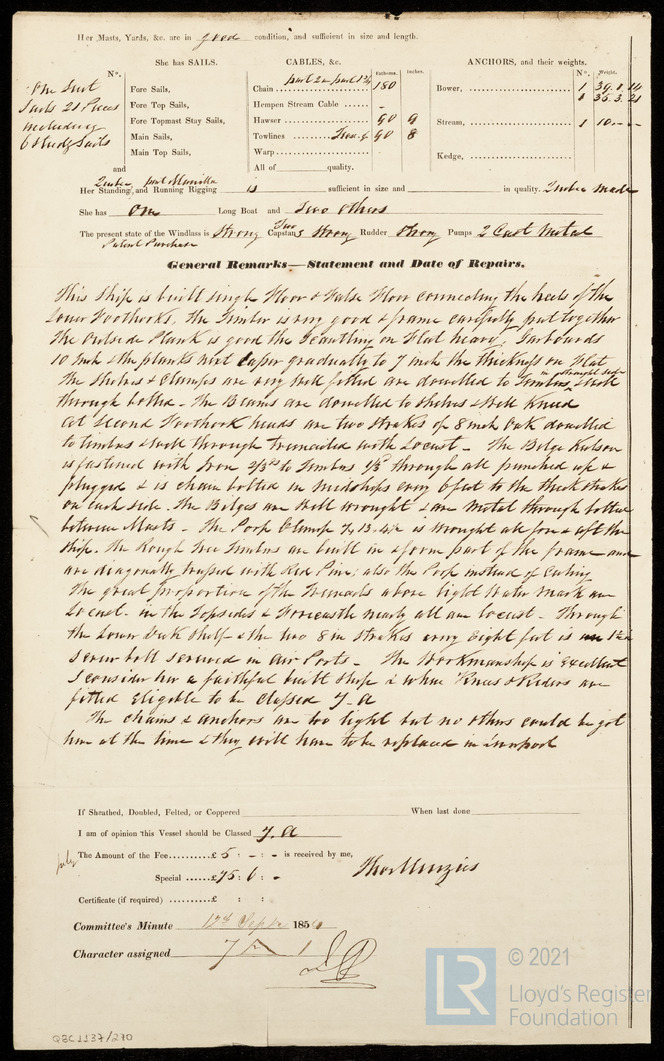 Her Masts, Yards, &c. are in good condition, and sufficient in size and length.
She has SAILS.
CABLES, &c.
ANCHORS, and their weights.
No.
Fathoms.
Inches.
No.
Weight.
One Suit
Sails 21 Pieces
including
6 Study Sails
and
Fore Sails,
Fore Top Sails,
Fore Topmast Stay Sails,
Main Sails,
Main Top Sails,
Chain part 2 & part 1¾ 180
Hempen Stream Cable -
Hawser 90 9
Towlines 90 8
Warp
All of quality.
Bower, 1 39.1.14
1 36.3.21
Stream, 1 10.-.-
Kedge,
Her Standing and Running Rigging part Manilla is sufficient in size and in quality. Quebec made
She has One Long Boat and Two others
The present state of the Windlass is Strong Capstan Two Strong Rudder Strong Pumps 2 Cast Metal
Patent Purchase
General Remarks—Statement and Date of Repairs.
This Ship is built single Floor & False Floor connecting the heels of the
Lower Foothooks, the Timber is very good & frame carefully put together
The Outside Plank is good the Scantling on Flat heavy, Garboards
10 inch & the planks next taper gradually to 7 inch the thickness on Flat
The Shelves & Clamps are very well fitted are dowelled to Timbers & well
through bolted. The Beams are dowelled to Shelves & Well Kneed
At Second Foothook heads are two strakes of 8 inch Oak dowelled
to timbers & well through treenailed with Locust - The Bilge Kelson
is fastened with Iron 2/3ds to Timbers 1/3d through all punched up &
plugged & is chain bolted in midships every 6 feet to the thick strakes
on each side. The Bilges are well wrought & are Metal through bolted
between Masts - The Poop Clamp is wrought all fore & aft the
Ship. The Rough Tree Timbers are built in & form part of the frame and
are diagonally trussed with Red Pine, also the Poop instead of Ceiling
The great proportion of the Treenails above light Water mark are
Locust. in the Topsides & Forecastle nearly all are Locust - Through
the Lower Deck Shelf & the two 8 in Strakes every Eight feet is
Screw bolt screwed in Air Ports - The Workmanship is Excellent
I consider her a faithful built Ship & when Knees & Riders are
fitted Eligible to be Classed 7.A
The chains & anchors are too light but no others could be got
here at the time & they will have to be replaced in Liverpool
If Sheathed, Doubled, Felted, or Coppered When last done
I am of opinion this Vessel should be Classed 7.A
July
The Amount of the Fee £5 : - : - is received by me,
Special £75 : 6 : -
Thos Menzies
Certificate (if required) £ : :
Committee's Minute 12th Septr 185
Character assigned 7 A 1
© 2021
LR
Lloyd's Register
Foundation
QBC1137/270